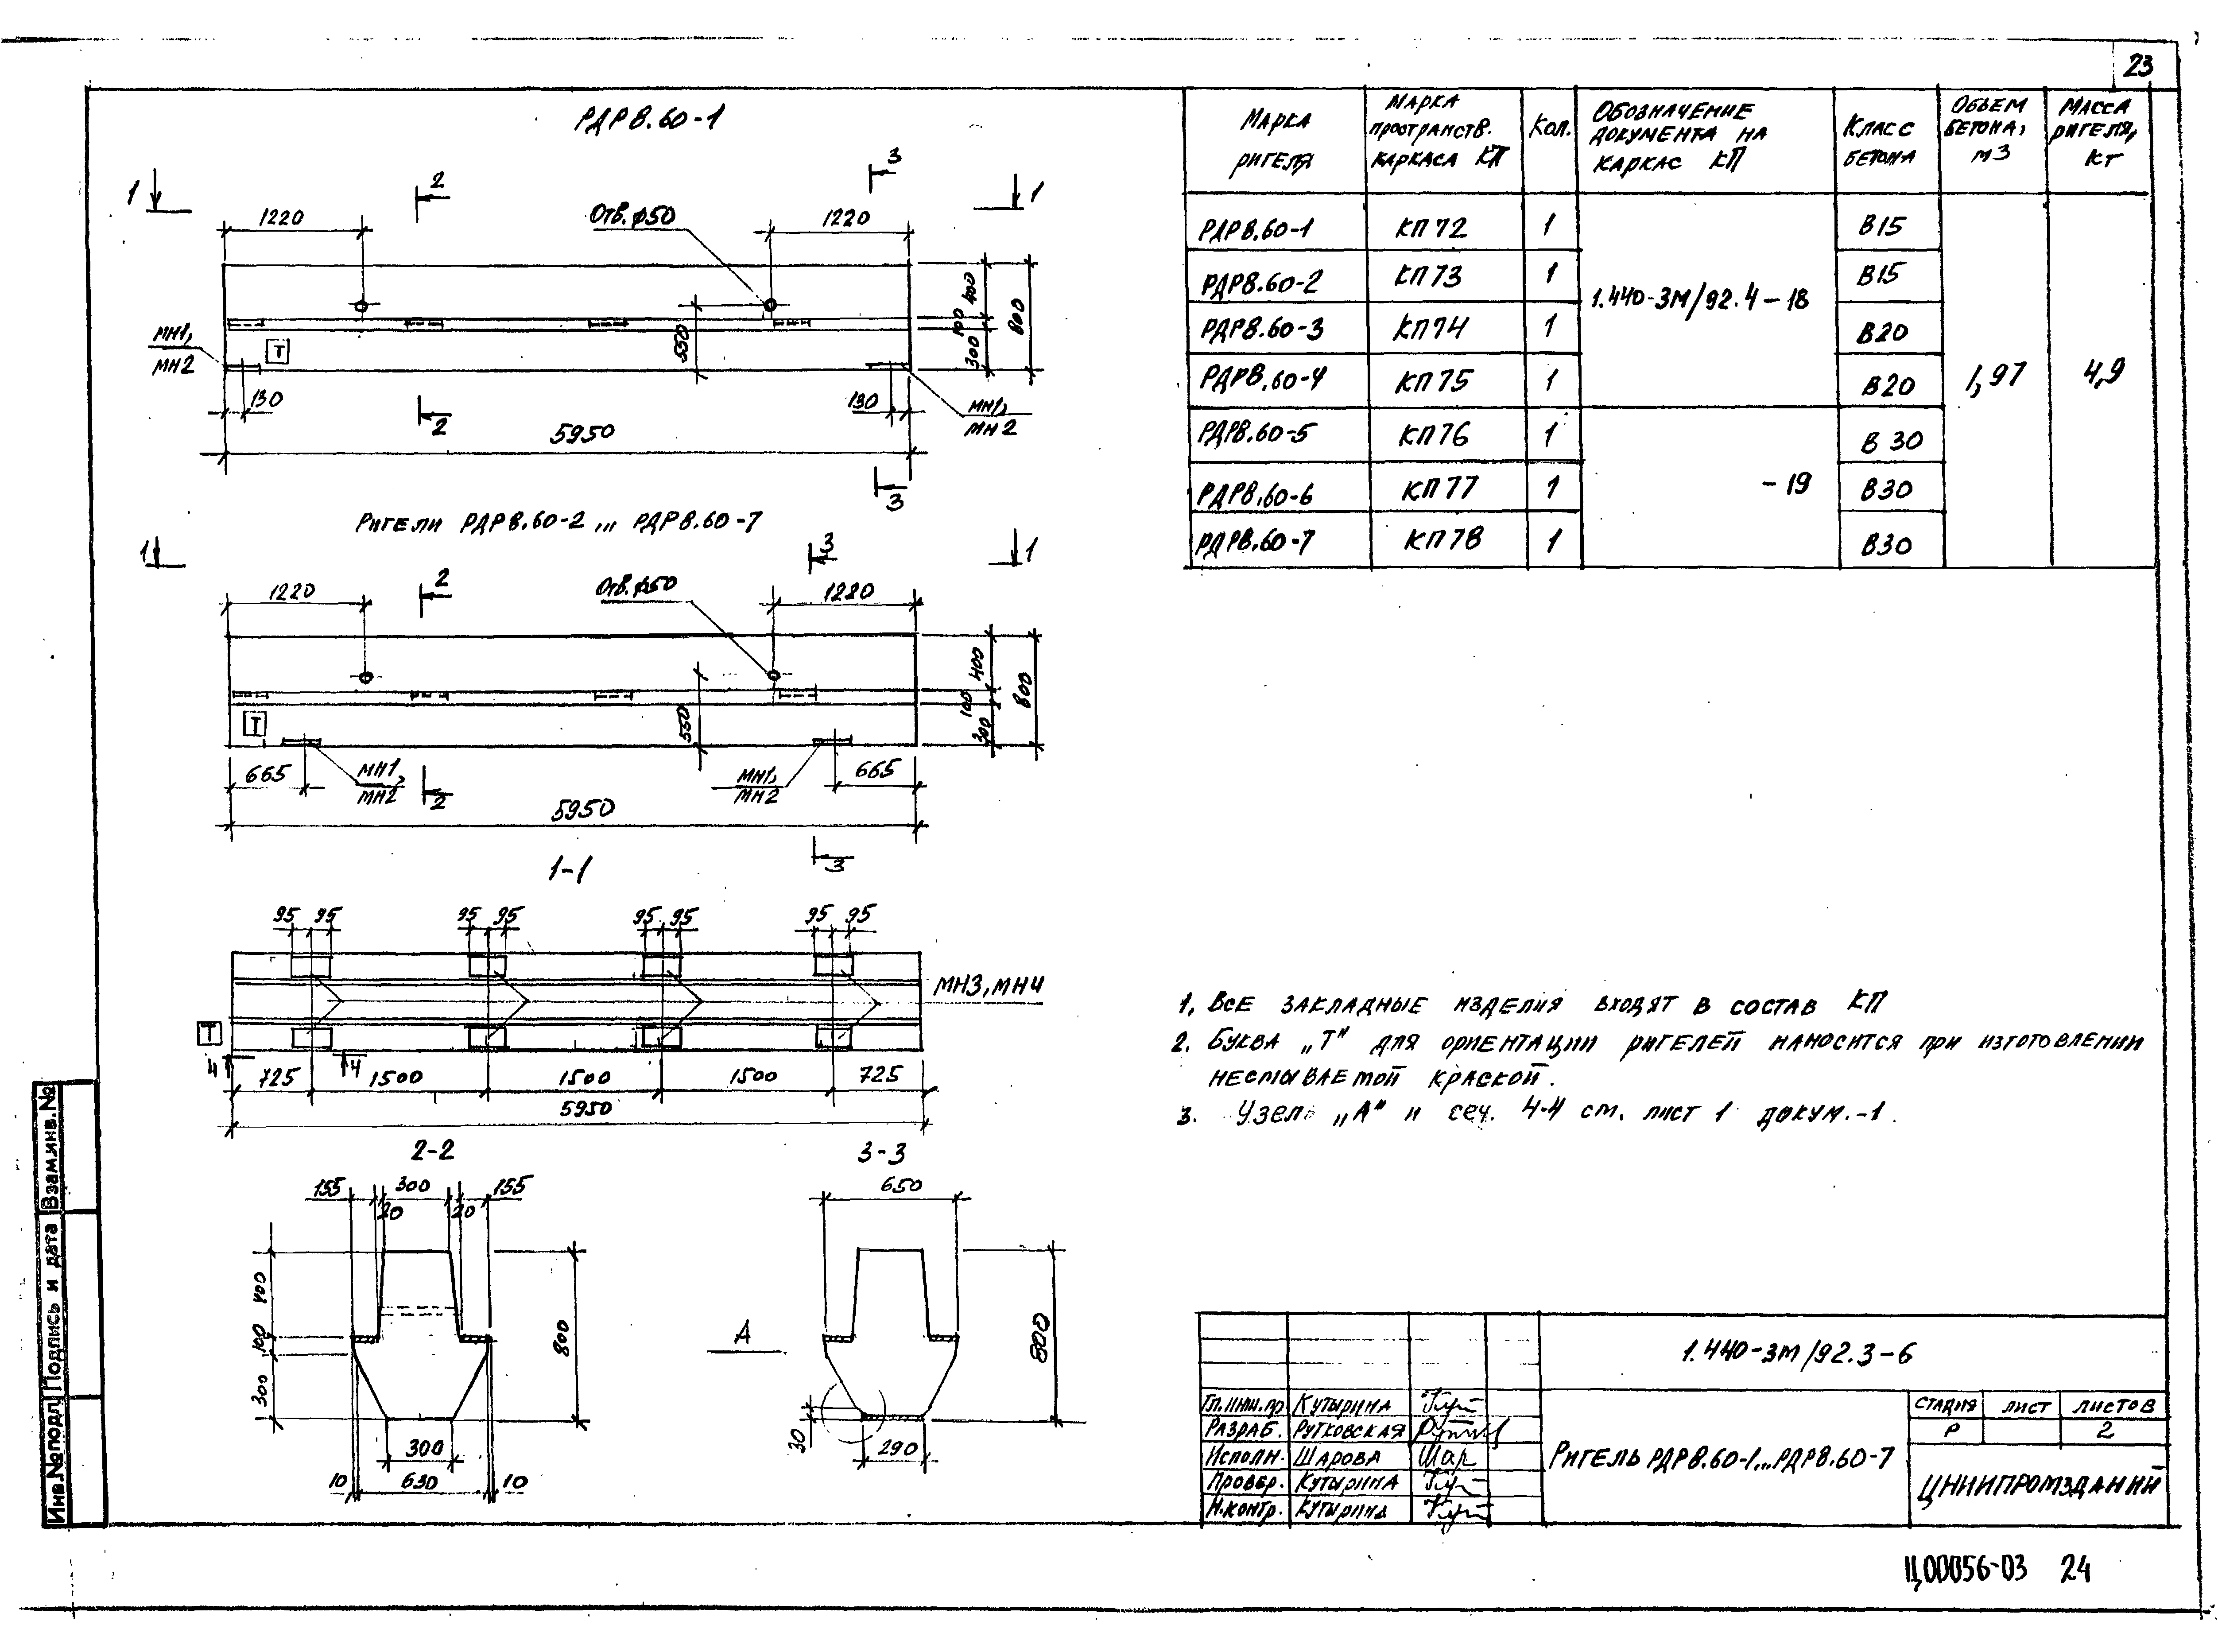 23
РДР8.60-1
1
2
3
1
1220
Отв.ϕ50
1220
400
100
300
800
550
МН1,
МН2
Т
130
130
МН1,
МН2
2
5950
3
Ригели РДР8.60-2 ,,, РДР8.60-7
1
2
3
1
1220
Отв.ϕ50
1220
400
100
300
800
550
Т
665
МН1,
МН2
2
МН1,
МН2
665
5950
3
1-1
95 95
95 95
95 95
95 95
МН3, МН4
Т
4
4
725
1500
1500
1500
725
5950
2-2
155
300
155
20
20
400
100
300
800
300
10
630
10
3-3
650
А
800
30
290
Марка ригеля
Марка пространств. каркаса КП
Кол.
Обозначение документа на каркас КП
Класс бетона
Объем бетона, м3
Масса ригеля, кг
РДР8.60-1 КП72 1 В15
РДР8.60-2 КП73 1 В15
1.440-3М/92.4-18
РДР8.60-3 КП74 1 В20
РДР8.60-4 КП75 1 В20 1,97 4,9
РДР8.60-5 КП76 1 В30
РДР8.60-6 КП77 1 -19 В30
РДР8.60-7 КП78 1 В30
1. Все закладные изделия входят в состав КП
2. Буква „Т" для ориентации ригелей наносится при изготовлении
несмываемой краской.
3. Узел „А" и сеч. 4-4 см. лист 1 докум.-1.
1.440-3М/92.3-6
Гл.инж.пр Кутырина
Разраб. Рутковская
Исполн. Шарова
Провер. Кутырина
Н.контр. Кутырина
Ригель РДР8.60-1...РДР8.60-7
Стадия Лист Листов
Р 2
ЦНИИПРОМЗДАНИЙ
Инв.№подл. Подпись и дата Взам.инв.№
Ц00056-03 24